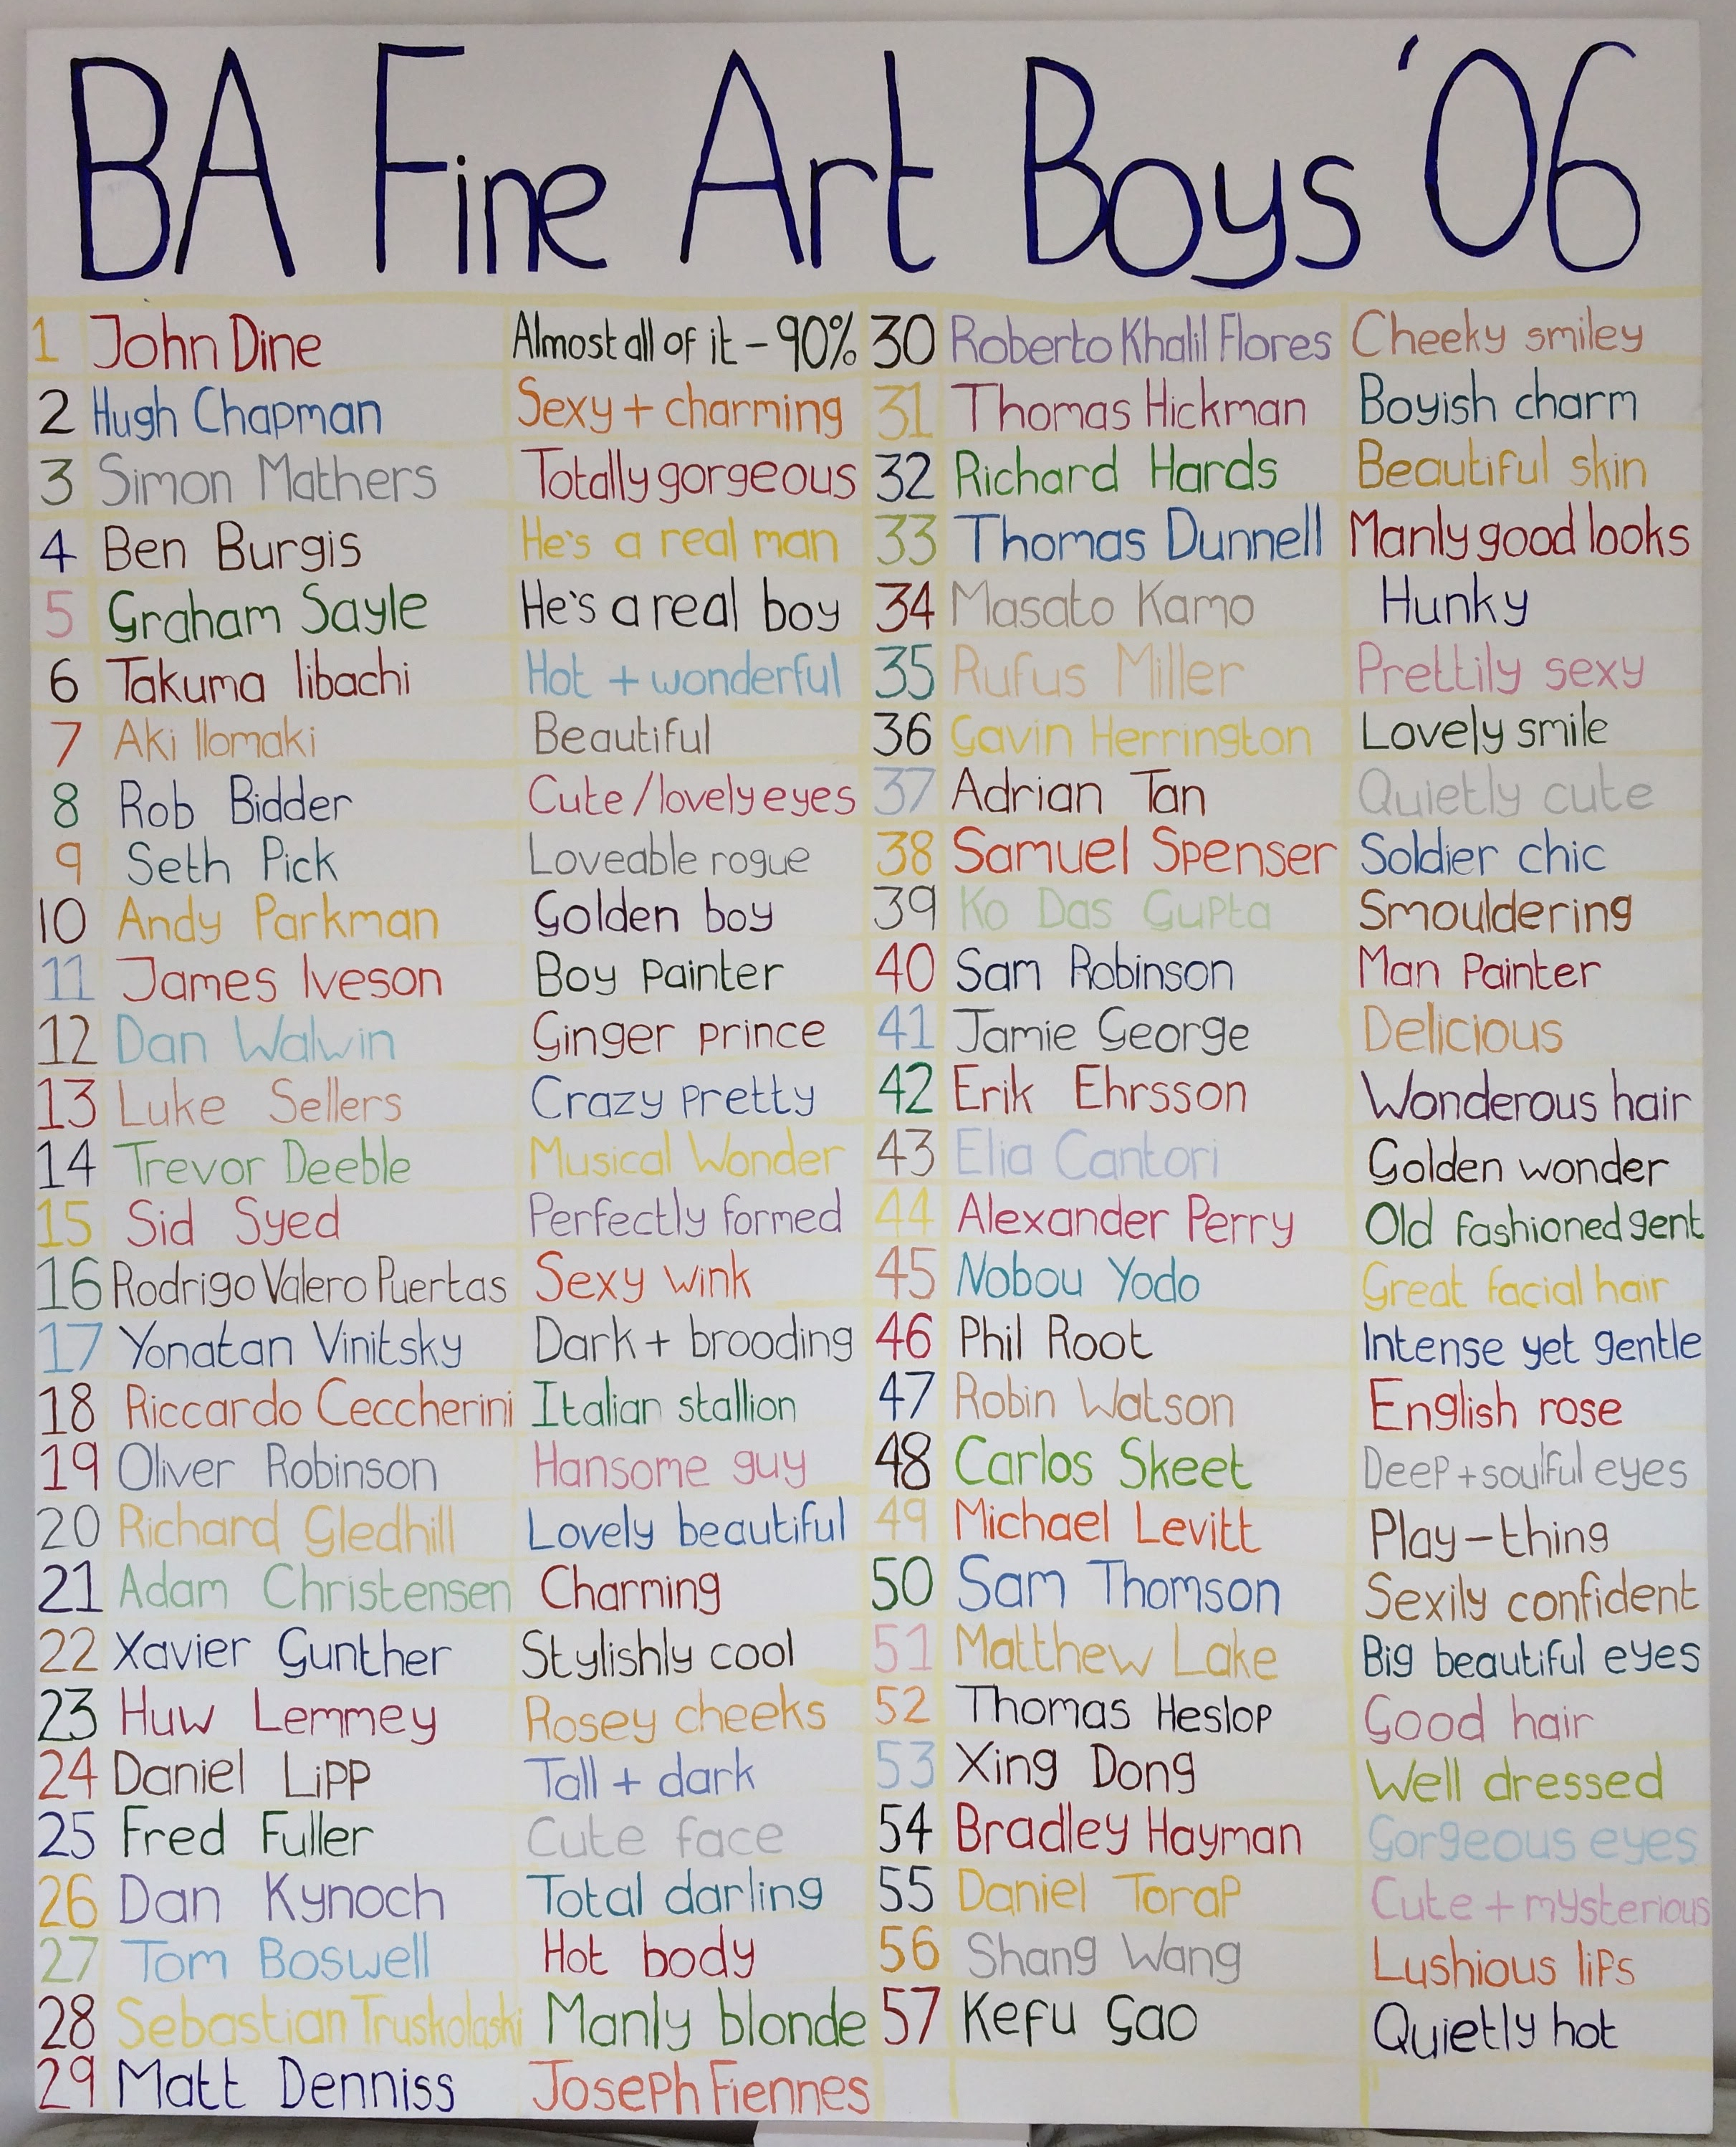 BA Fine Art Boys '06
1 John Dine Almost all of it – 90%
2 Hugh Chapman Sexy + charming
3 Simon Mathers Totally gorgeous
4 Ben Burgis He's a real man
5 Graham Sayle He's a real boy
6 Takuma Iibachi Hot + wonderful
7 Aki Ilomaki Beautiful
8 Rob Bidder Cute / lovely eyes
9 Seth Pick Loveable rogue
10 Andy Parkman Golden boy
11 James Iveson Boy painter
12 Dan Walwin Ginger prince
13 Luke Sellers Crazy pretty
14 Trevor Deeble Musical Wonder
15 Sid Syed Perfectly formed
16 Rodrigo Valero Puertas Sexy wink
17 Yonatan Vinitsky Dark + brooding
18 Riccardo Ceccherini Italian stallion
19 Oliver Robinson Hansome guy
20 Richard Gledhill Lovely beautiful
21 Adam Christensen Charming
22 Xavier Gunther Stylishly cool
23 Huw Lemmey Rosey cheeks
24 Daniel Lipp Tall + dark
25 Fred Fuller Cute face
26 Dan Kynoch Total darling
27 Tom Boswell Hot body
28 Sebastian Truskolaski Manly blonde
29 Matt Denniss Joseph Fiennes
30 Roberto Khalil Flores Cheeky smiley
31 Thomas Hickman Boyish charm
32 Richard Hards Beautiful skin
33 Thomas Dunnell Manly good looks
34 Masato Kamo Hunky
35 Rufus Miller Prettily sexy
36 Gavin Herrington Lovely smile
37 Adrian Tan Quietly cute
38 Samuel Spenser Soldier chic
39 Ko Das Gupta Smouldering
40 Sam Robinson Man Painter
41 Jamie George Delicious
42 Erik Ehrsson Wonderous hair
43 Elia Cantori Golden wonder
44 Alexander Perry Old fashioned gent
45 Nobou Yodo Great facial hair
46 Phil Root Intense yet gentle
47 Robin Watson English rose
48 Carlos Skeet Deep + soulful eyes
49 Michael Levitt Play-thing
50 Sam Thomson Sexily confident
51 Matthew Lake Big beautiful eyes
52 Thomas Heslop Good hair
53 Xing Dong Well dressed
54 Bradley Hayman Gorgeous eyes
55 Daniel Torap Cute + mysterious
56 Shang Wang Lushious lips
57 Kefu Gao Quietly hot